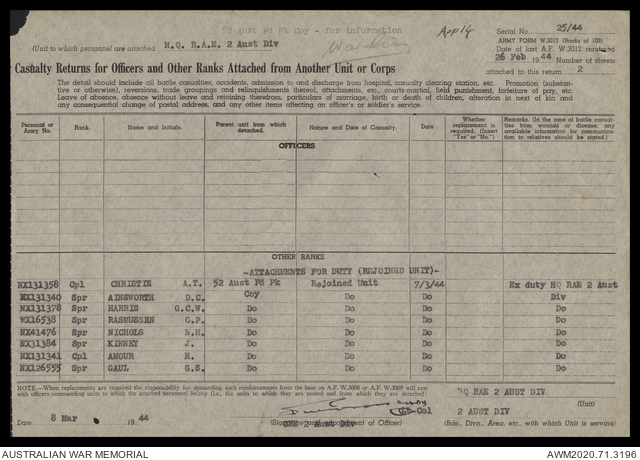 52 Aust Fd Pk Coy - for information
App 14
Serial No. 25/44
ARMY FORM W.3012 (Books of 100)
(Unit to which personnel are attached H.Q. R.A.E. 2 Aust Div
War Diary
Date of last A.F. W.3012 rendered
26 Feb 1944 Number of sheets
Casualty Returns for Officers and Other Ranks Attached from Another Unit or Corps
attached to this return 2
The detail should include all battle casualties, accidents, admission to and discharge from hospital, casualty clearing station, etc. Promotion (substan-
tive or otherwise), reversions, trade groupings and relinquishments thereof, attachments, etc., courts-martial, field punishment, forfeiture of pay, etc.
Leave of absence, absence without leave and rejoining therefrom, particulars of marriage, birth or death of children, alteration in next of kin and
any consequential change of postal address, and any other items affecting an officer's or soldier's service.
Personal or Army No. Rank. Name and Initials. Parent unit from which detached. Nature and Date of Casualty. Date Whether replacement is required. (Insert "Yes" or "No.") Remarks. (In the case of battle casualties from wounds or disease, any available information for communication to relatives should be stated.)
OFFICERS
OTHER RANKS
-ATTACHMENTS FOR DUTY (REJOINED UNIT)-
NX131358 Cpl CHRISTIE A.T. 52 Aust Fd Pk Coy Rejoined Unit 7/3/44 Ex duty HQ RAE 2 Aust Div
NX131340 Spr AINSWORTH D.C. Do Do
NX131378 Spr HARRIS G.C.W. Do Do Do Do
WX16538 Spr RASMUSSEN G.P. Do Do Do Do
NX41476 Spr NICHOLS N.H. Do Do Do Do
NX31384 Spr KINNEY J. Do Do Do Do
NX131341 Cpl AMOUR H. Do Do Do Do
NX126555 Spr GAUL G.S. Do Do Do Do
NOTE.—When replacements are required the responsibility for demanding such reinforcements from the base on A.F. W.3008 or A.F. W.3009 will rest
with officers commanding units to which the attached personnel belong (i.e., the units to which they are posted and from which they are detached)
HQ RAE 2 AUST DIV
(Unit)
Lt Col
2 AUST DIV
Date 8 Mar 1944
CRE 2 Aust Div
(Bde., Divn., Area, etc., with which Unit is serving)
AUSTRALIAN WAR MEMORIAL
AWM2020.71.3196